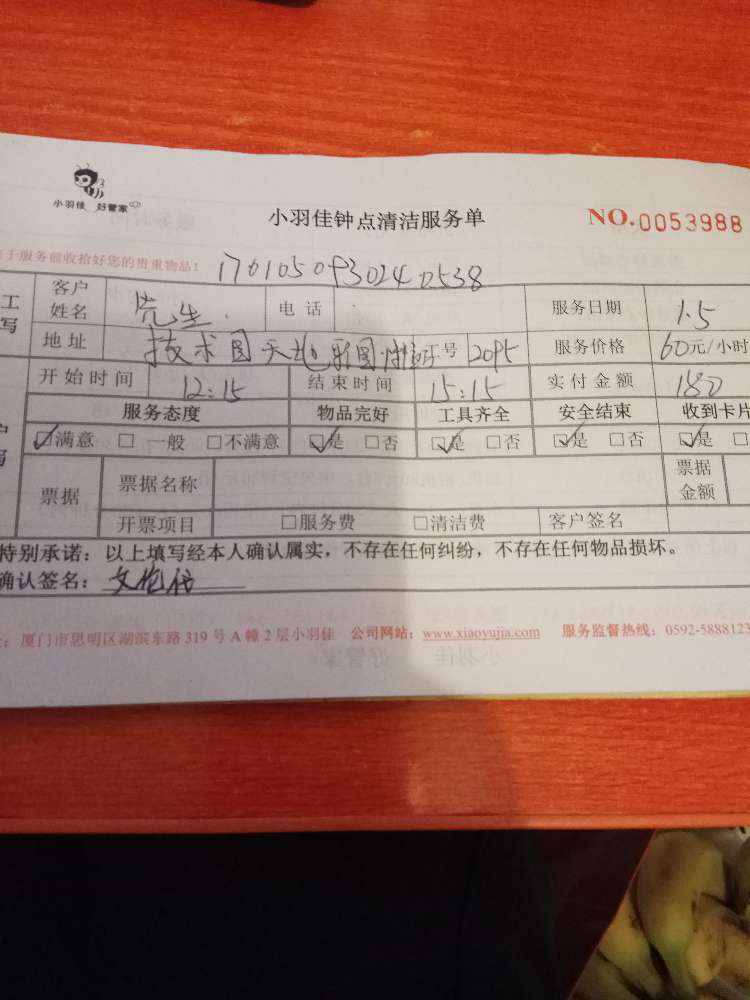 小羽佳 好管家
小羽佳钟点清洁服务单
NO.0053988
于服务前收拾好您的贵重物品!
170105093024 0538
工
写
客户
姓名
先生
电话
服务日期
1.5
地址
技术
号 2095
服务价格
60元/小时
开始时间
12:15
结束时间
15:15
实付金额
180
服务态度
物品完好
工具齐全
安全结束
收到卡片
☑满意 □一般 □不满意
☑是 □否
☑是 □否
☑是 □否
☑是 □
票据
票据名称
票据
金额
开票项目
□服务费
□清洁费
客户签名
特别承诺:以上填写经本人确认属实,不存在任何纠纷,不存在任何物品损坏。
确认签名:
厦门市思明区湖滨东路319号A幢2层小羽佳 公司网站:www.xiaoyujia.com 服务监督热线:0592-5888123